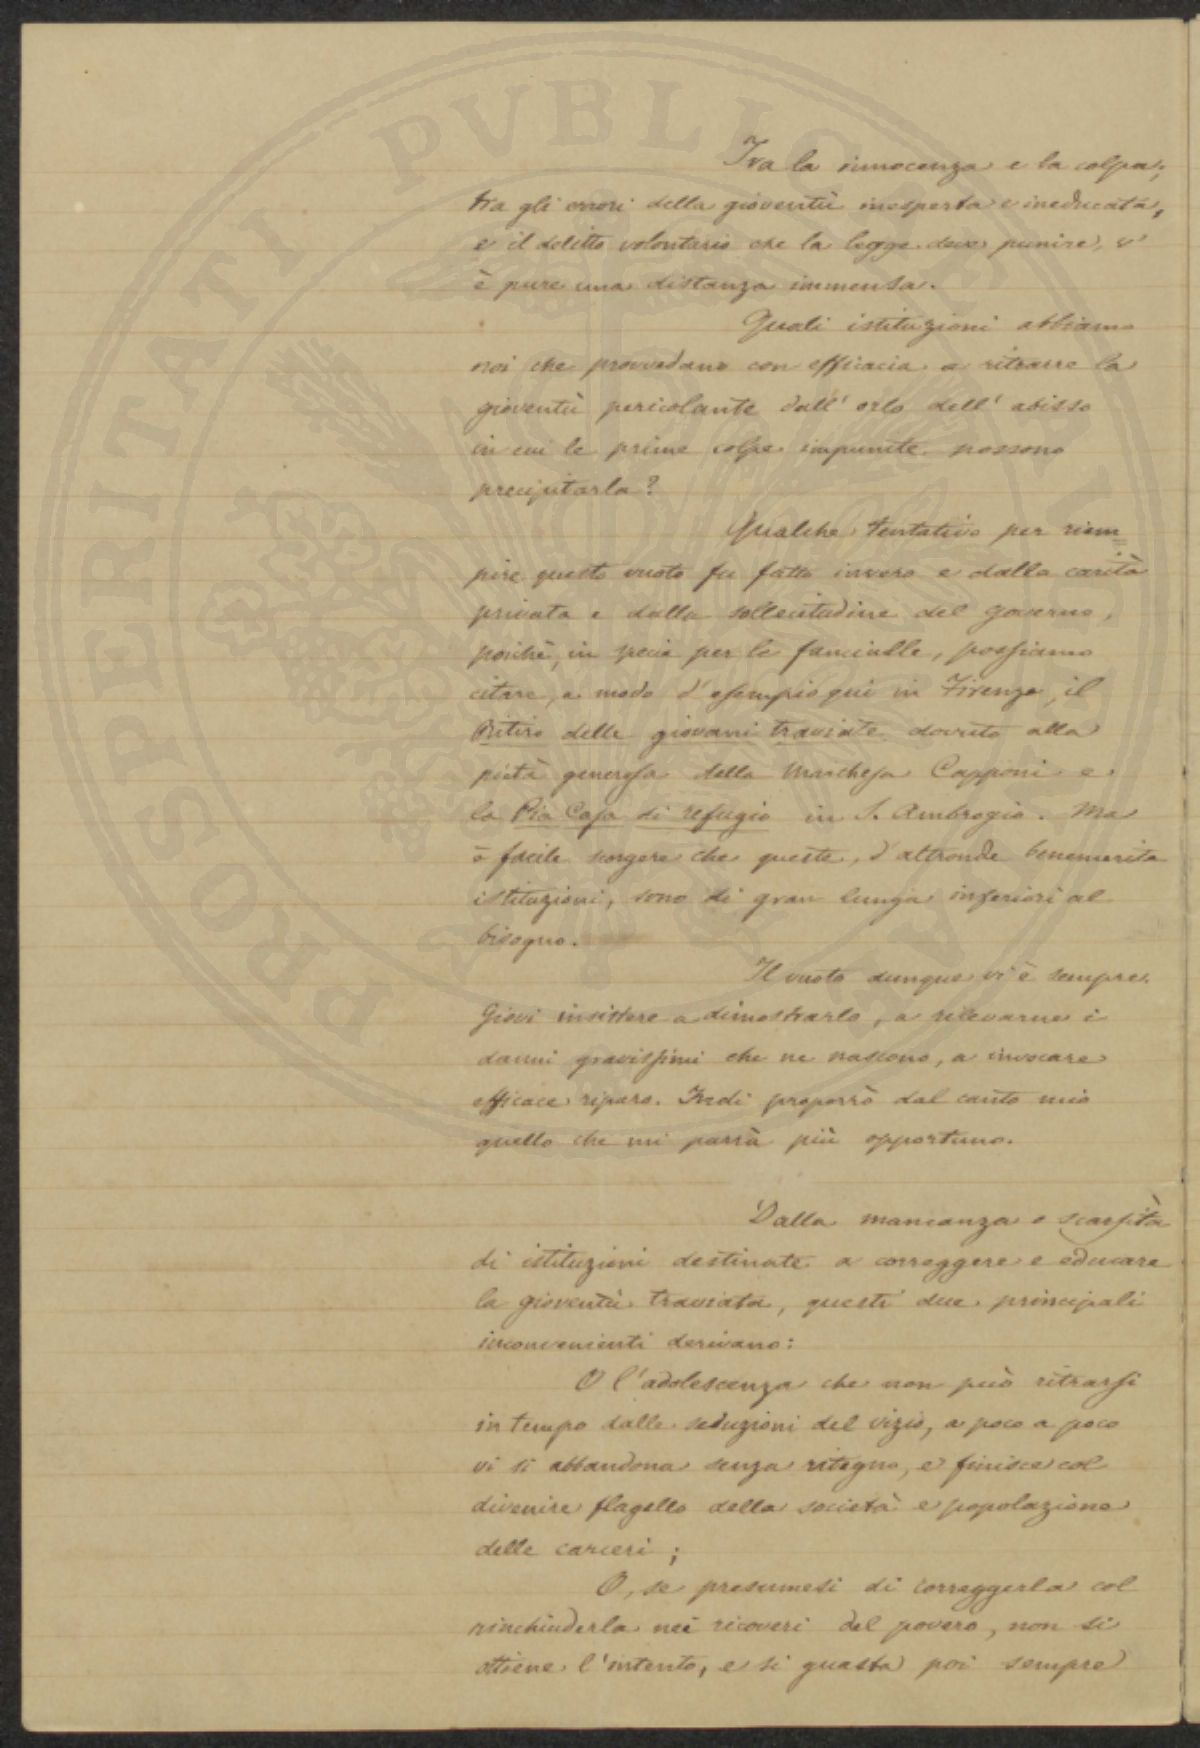 Tra la innocenza e la colpa;
tra gli errori della gioventù inesperta e ineducata,
e il delitto volontario che la legge deve punire, v'
è pure una distanza immensa.
Quali istituzioni abbiamo
noi che provvedano con efficacia a ritrarre la
gioventù pericolante dall' orlo dell' abisso
in cui le prime colpe impunite possono
precipitarla?
Qualche tentativo per riem=
pire questo vuoto fu fatto invero e dalla carità
privata e dalla sollecitudine del governo,
poichè, in specie per le fanciulle, possiamo
citare, a modo d'esempio qui in Firenze, il
Ritiro delle giovani traviate dovuto alla
pietà generosa della Marchesa Capponi e
la Pia Casa di refugio in S. Ambrogio. Ma
è facile scorgere che queste, d'altronde benemerite
istituzioni, sono di gran lunga inferiori al
bisogno.
Il vuoto dunque vi è sempre.
Giovi insistere a dimostrarlo, a rilevarne i
danni gravissimi che ne nascono, a invocare
efficace riparo. Indi proporrò dal canto mio
quello che mi parrà più opportuno.
Dalla mancanza o scarsità
di istituzioni destinate a correggere e educare
la gioventù traviata, questi due principali
inconvenienti derivano:
O l'adolescenza che non può ritrarsi
in tempo dalle seduzioni del vizio, a poco a poco
vi si abbandona senza ritegno, e finisce col
divenire flagello della società e popolazione
delle carceri;
O, se presumesi di correggerla col
rinchiuderla nei ricoveri del povero, non si
ottiene l'intento, e si guasta poi sempre
PROSPERITATI PVBLICAE AVGENDAE